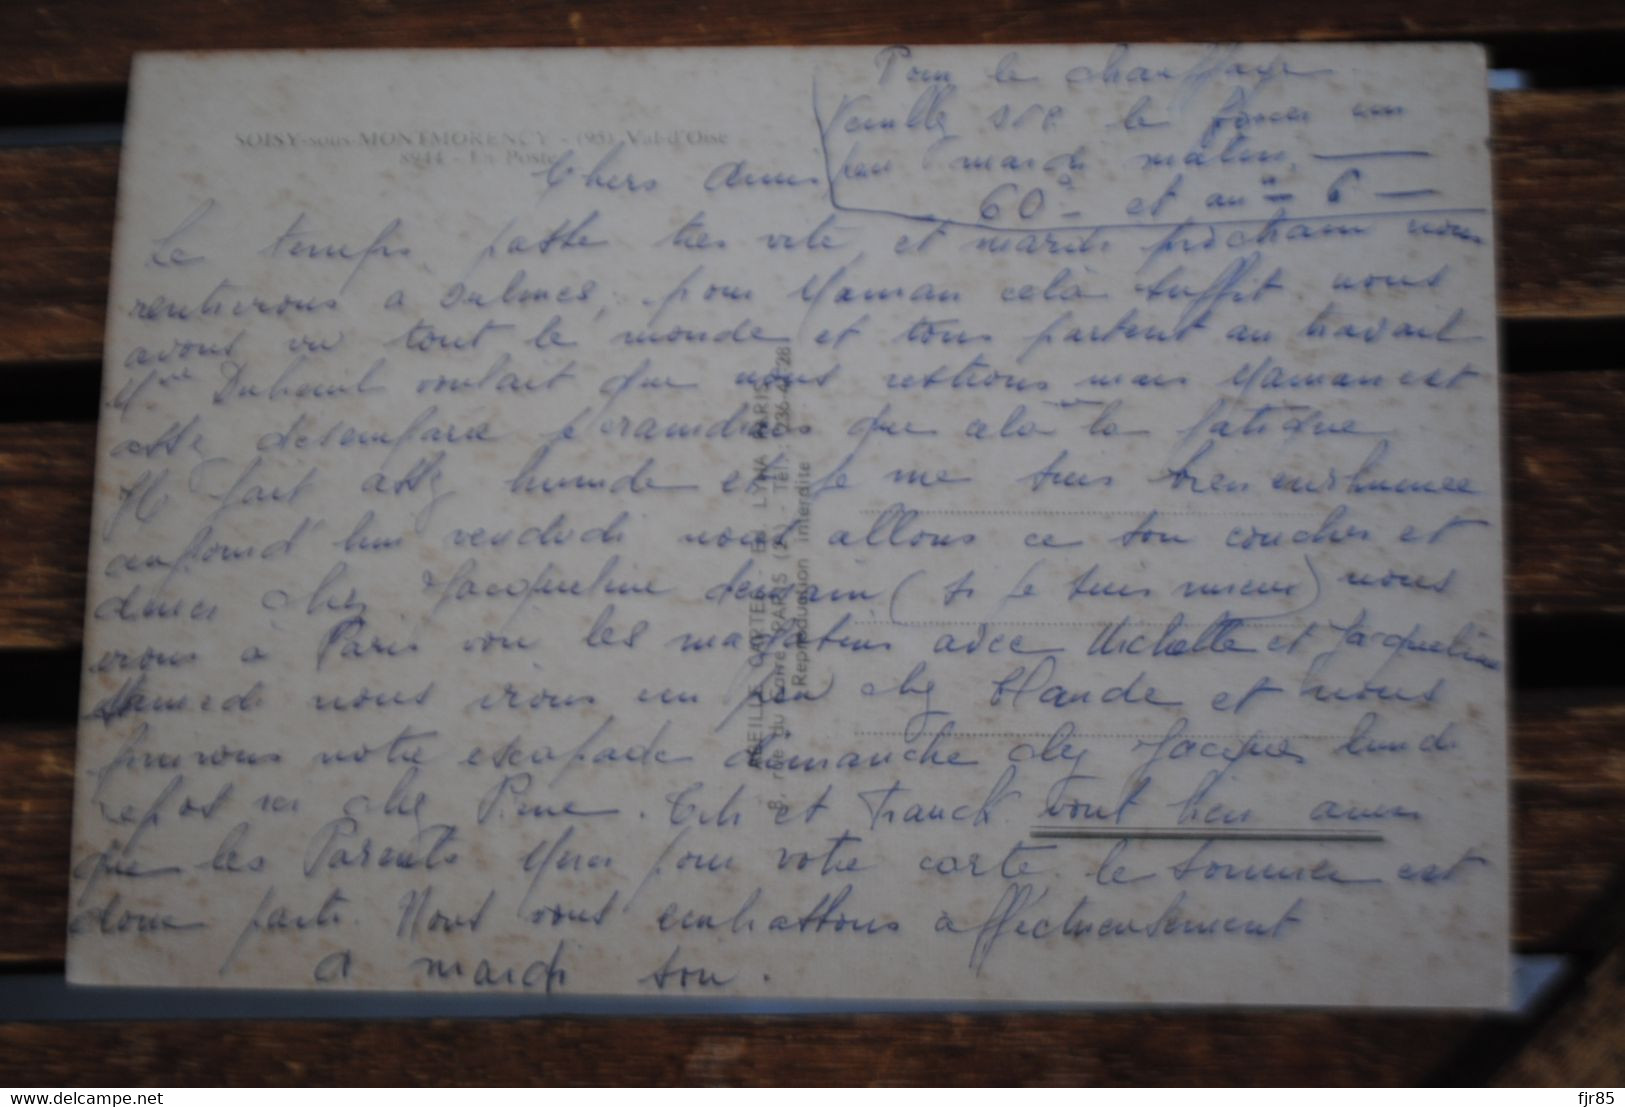 SOISY-sous-MONTMORENCY - (95) Val-d'Oise
8944 - La Poste
Pour le chauffage
veuillez svp le pousser un
peu mardi matin
60° - et au - 6 -
Chers Amis
Le temps passe très vite, et mardi prochain nous
rentrerons à, pour Maman cela suffit nous
avons vu tout le monde et tous partent au travail
Mme Duheuil voulait que nous restions mais Maman est
assez desemparée je craindrais que cela la fatigue
Il fait assez humide et je me suis bien enrhumée
aujourd'hui vendredi nous allons ce soir coucher et
diner chez Jacqueline demain (si je suis mieux) nous
irons à Paris voir les magasins avec Michelle et Jacqueline
Samedi nous irons un peu chez Claude et nous
finirons notre escapade dimanche chez Jacques lundi
repos ici chez Pme. et Franck vont bien ainsi
que les Parents Merci pour votre carte le sommier est
donc parti. Nous vous embrassons affectueusement
a mardi soir.
ABEILLE CARTES - Ed. LYNA PARIS
8, rue du Caire, PARIS (2e) - Tél. : 236-41-28
Reproduction interdite
delcampe.net
fjr85